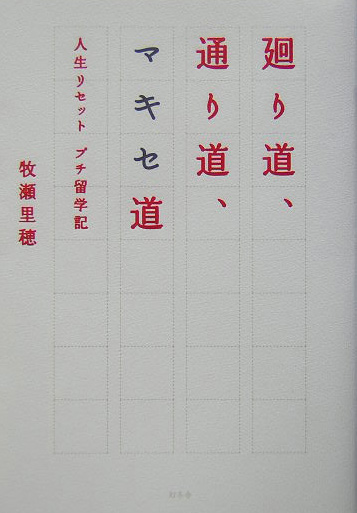 廻り道、
通り道、
マキセ道
人生リセット プチ留学記
牧瀬里穂
幻冬舎